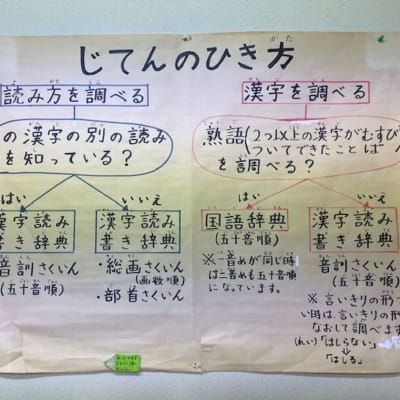 じてんのひき方
読み方を調べる
の漢字の別の読み
を知っている?
はい
いいえ
漢字読み
書き辞典
音訓さくいん
(五十音順)
漢字読み
書き辞典
・総画さくいん
(画数順)
・部首さくいん
漢字を調べる
熟語(2つ以上の漢字がむすび
ついてできたことば)
を調べる?
はい
いいえ
国語辞典
(五十音順)
※一音めが同じ時
は二音めも五十音順
になっています。
漢字読み
書き辞典
音訓さくいん
(五十音順)
※言いきりの形で
い時は、言いきりの形
なおして調べます
(れい)「はしらない」
↓
「はしる」